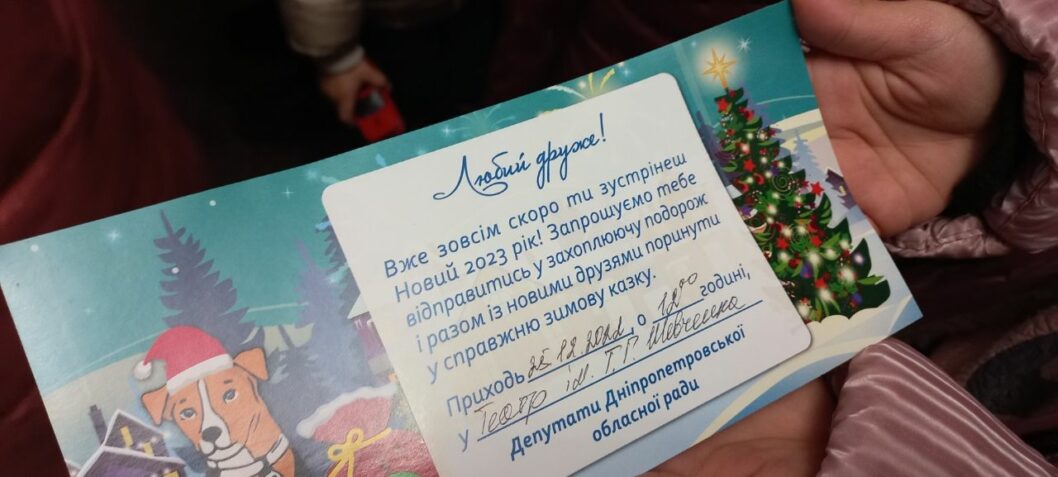 Любий друже!
Вже зовсім скоро ти зустрінеш
Новий 2023 рік! Запрошуємо тебе
відправитись у захоплюючу подорож
і разом із новими друзями поринути
у справжню зимову казку.
Приходь 25.12.2022, о 12⁰⁰ годині,
у Театр ім. Т.Г. Шевченка
Депутати Дніпропетровської
обласної ради